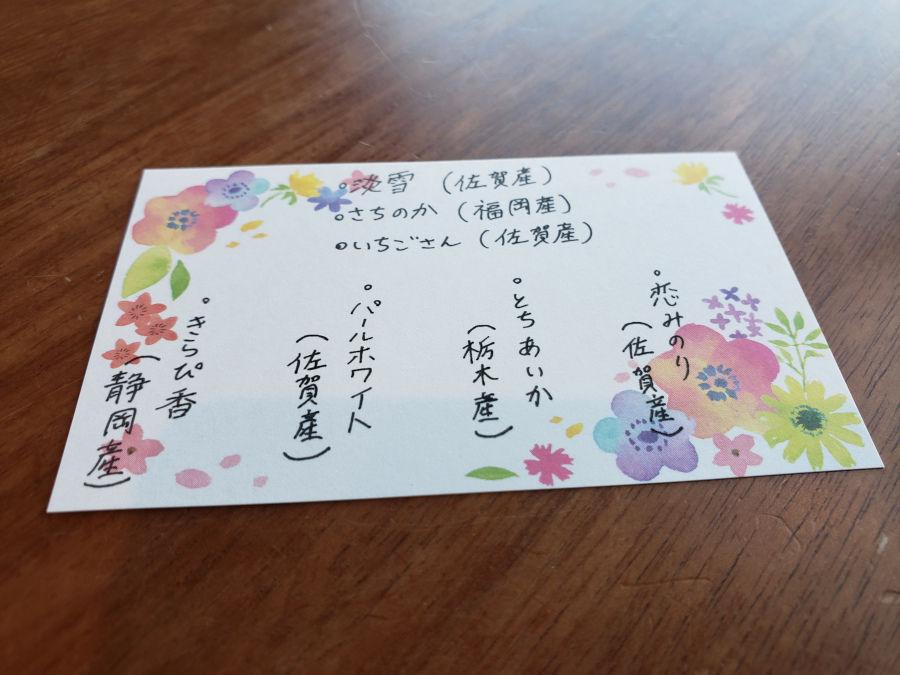 ○淡雪（佐賀産）
○さちのか（福岡産）
○いちごさん（佐賀産）
○恋みのり
（佐賀産）
○とちあいか
（栃木産）
○パールホワイト
（佐賀産）
○きらぴ香
（静岡産）